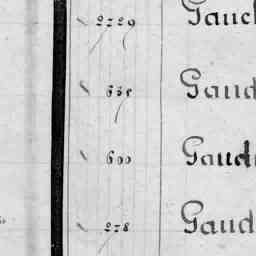 2729 Gauch
635 Gaud
600 Gaud
278 Gaud